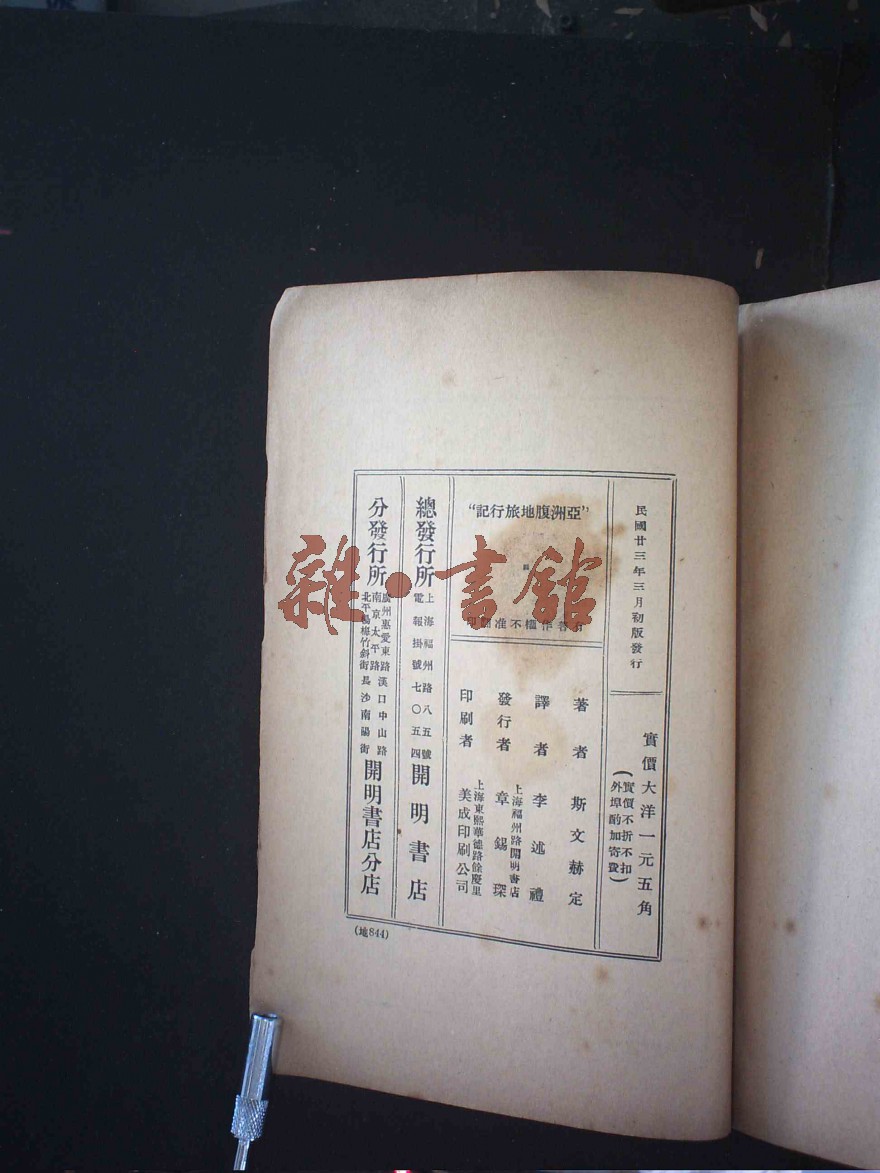 民國廿三年三月初版發行
實價大洋一元五角
(實價不折不扣
外埠酌加寄費)
“亞洲腹地旅行記”
有著作權不准翻印
著者 斯文赫定
譯者 李述禮
發行者 上海福州路開明書店
章錫琛
印刷者 上海東熙華德路餘慶里
美成印刷公司
總發行所 上海福州路八五號
電報掛號七〇五四
開明書店
分發行所 廣州惠愛東路漢口中山路
南京太平路
北平楊梅竹斜街長沙南陽街
開明書店分店
(地844)
雜·書館